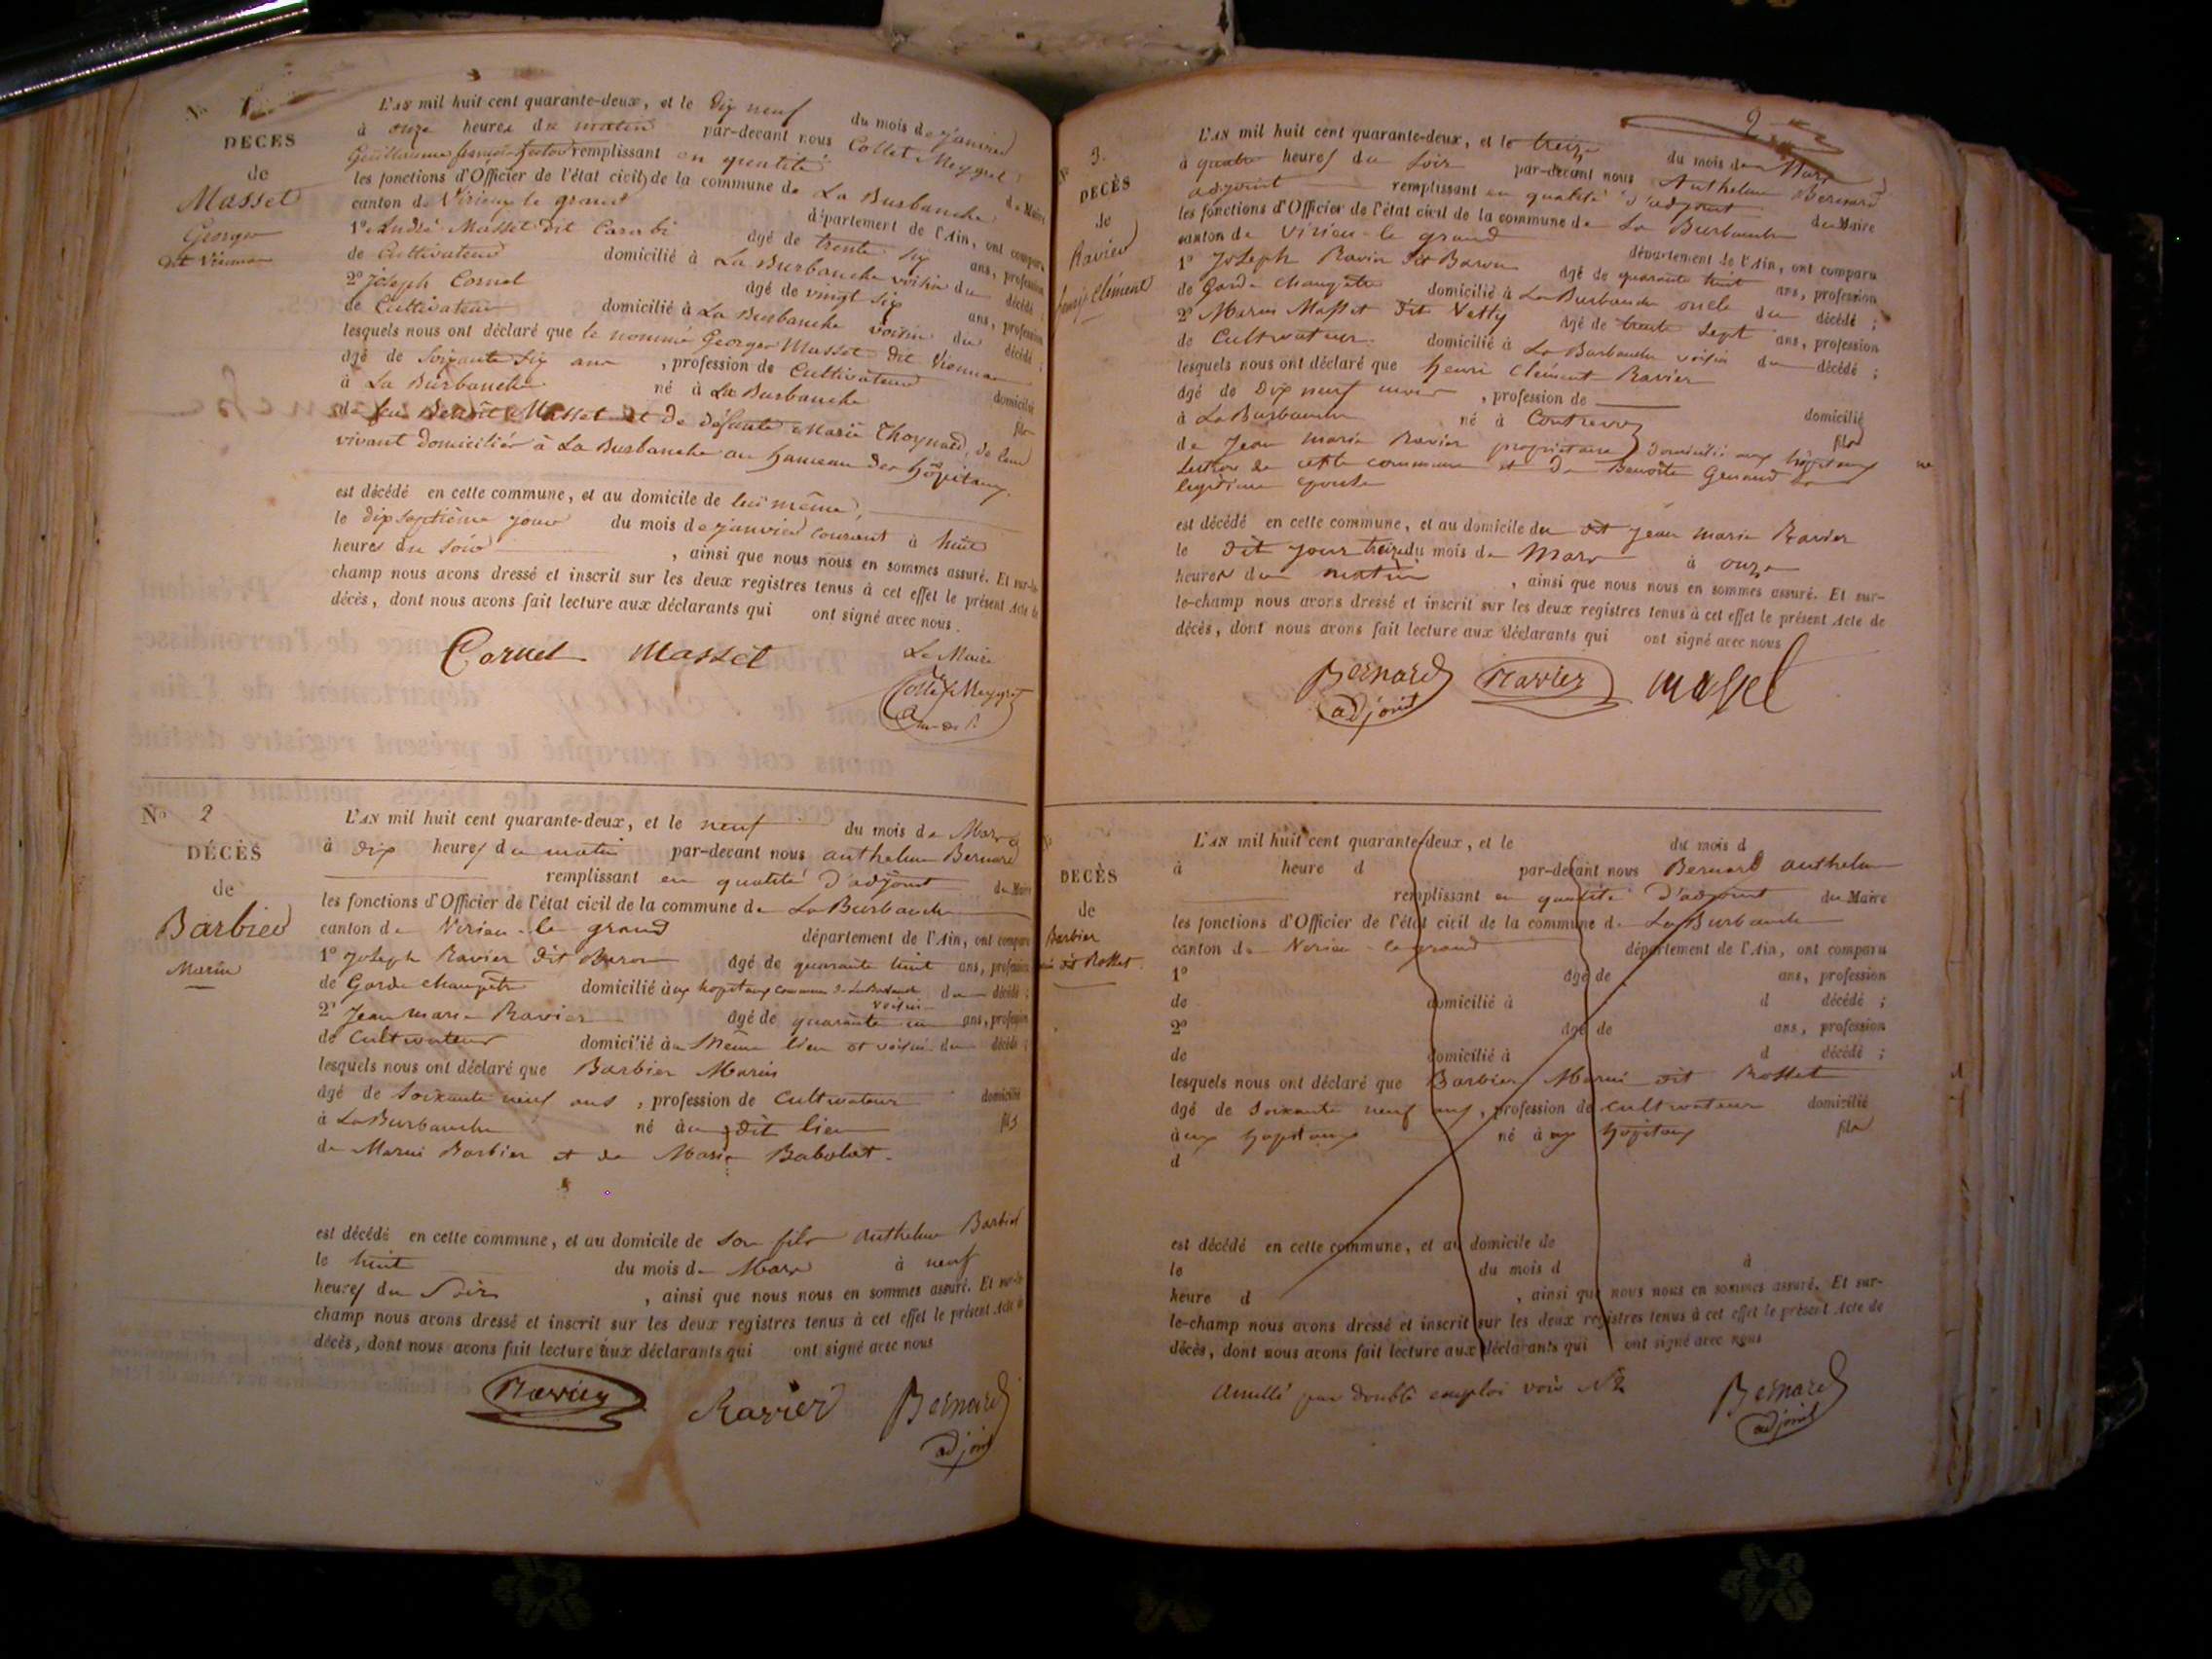 No 1
DECES
de
Masset
George
dit Viennois
L'AN mil huit cent quarante-deux, et le dix neuf du mois de janvier
à onze heures du matin par-devant nous Collet Meygret
Guillaume françois remplissant en qualité de Maire
les fonctions d'Officier de l'état civil de la commune de La Burbanche
canton de Virieux le grand département de l'Ain, ont comparu
1° André Masset dit Carabi âgé de trente six ans, profession
de Cultivateur domicilié à La Burbanche voisin du décédé ;
2° Joseph Cornet âgé de vingt six ans, profession
de Cultivateur domicilié à La Burbanche voisin du décédé ;
lesquels nous ont déclaré que le nommé George Masset dit
âgé de soixante six ans , profession de Cultivateur domicilié
à La Burbanche né à La Burbanche fils
de feu Benoit Masset et de défunte Marie Thoynard, de leur
vivant domiciliés à La Burbanche au hameau des hôpitaux.
est décédé en cette commune, et au domicile de lui même,
le dix septième jour du mois de janvier courant à huit
heures du soir , ainsi que nous nous en sommes assuré. Et sur-le-
champ nous avons dressé et inscrit sur les deux registres tenus à cet effet le présent Acte de
décès, dont nous avons fait lecture aux déclarants qui ont signé avec nous.
Cornet Masset Le Maire
Collet Meygret
No 2
DÉCÈS
de
Barbier
Marin
L'AN mil huit cent quarante-deux, et le neuf du mois de Mars
à dix heures du matin par-devant nous anthelme Bernard
remplissant en qualité d'adjoint du Maire
les fonctions d'Officier de l'état civil de la commune de La Burbanche
canton de Virieu-le grand département de l'Ain, ont comparu
1° Joseph Ravier dit Baron âgé de quarante huit ans, profession
de Garde champêtre domicilié aux hopitaux commune de La Burbanche voisin du décédé ;
2° Jean marie Ravier âgé de quarante un ans, profession
de Cultivateur domicilié au Même lieu et voisin du décédé ;
lesquels nous ont déclaré que Barbier Marin
âgé de Soixante neuf ans , profession de Cultivateur domicilié
à La Burbanche né au dit lieu fils
de Marin Barbier et de Marie Babolat.
est décédé en cette commune, et au domicile de son fils anthelme Barbier
le huit du mois de Mars à neuf
heures du Soir , ainsi que nous nous en sommes assuré. Et sur-le-
champ nous avons dressé et inscrit sur les deux registres tenus à cet effet le présent Acte de
décès, dont nous avons fait lecture aux déclarants qui ont signé avec nous
Ravier Ravier Bernard
adjoint
2
No 3.
DÉCÈS
de
Ravier
henri Clément
L'AN mil huit cent quarante-deux, et le treize du mois de Mars
à quatre heures du soir par-devant nous Anthelme Bernard
adjoint remplissant en qualité d'adjoint du Maire
les fonctions d'Officier de l'état civil de la commune de La Burbanche
canton de Virieu-le grand département de l'Ain, ont comparu
1° Joseph Ravier dit Baron âgé de quarante huit ans, profession
de Garde champêtre domicilié à La Burbanche oncle du décédé ;
2° Marin Masset dit Vetty âgé de trente sept ans, profession
de Cultivateur domicilié à La Burbanche voisin du décédé ;
lesquels nous ont déclaré que henri Clément Ravier
âgé de Dix neuf mois , profession de
à La Burbanche né à Contrevoz domicilié
de Jean marie Ravier propriétaire domicilié aux hôpitaux fils
Section de cette commune et de Benoite Genaud sa
légitime épouse
est décédé en cette commune, et au domicile du dit Jean marie Ravier
le dit jour treize du mois de Mars à onze
heures du matin , ainsi que nous nous en sommes assuré. Et sur-
le-champ nous avons dressé et inscrit sur les deux registres tenus à cet effet le présent Acte de
décès, dont nous avons fait lecture aux déclarants qui ont signé avec nous
Bernard Ravier Masset
adjoint
DECÈS
de
Barbier
dit Rosset
L'AN mil huit cent quarante-deux, et le du mois d
à heure d par-devant nous Bernard anthelme
remplissant en qualité d'adjoint du Maire
les fonctions d'Officier de l'état civil de la commune de La Burbanche
canton de Virieu-le grand département de l'Ain, ont comparu
1° âgé de ans, profession
de domicilié à d décédé ;
2° âgé de ans, profession
de domicilié à d décédé ;
lesquels nous ont déclaré que Barbier Marin dit Rosset
âgé de Soixante neuf ans, profession de cultivateur domicilié
aux hopitaux né aux hopitaux fils
d
est décédé en cette commune, et au domicile de
le du mois d à
heure d , ainsi que nous nous en sommes assuré. Et sur-
le-champ nous avons dressé et inscrit sur les deux registres tenus à cet effet le présent Acte de
décès, dont nous avons fait lecture aux déclarants qui ont signé avec nous
Annullé par double emploi voir N° 2
Bernard
adjoint